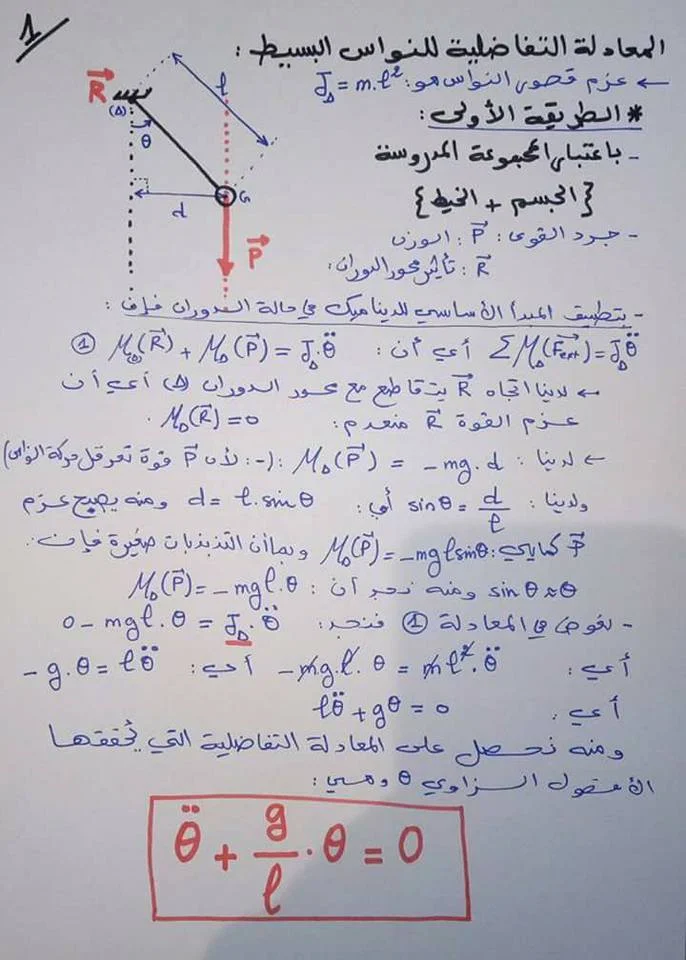 1
المعادلة التفاضلية للنواس البسيط :
← عزم قصور النواس هو: J_Δ = m.l²
* الطريقة الأولى :
- باعتبار المجموعة المدروسة
{الجسم + الخيط}
- جرد القوى: P⃗ : الوزن
R⃗ : تأثير محور الدوران:
R⃗
(Δ)
θ
l
d
G
P⃗
- بتطبيق المبدأ الأساسي للديناميك في حالة الدوران فإن :
ΣM_Δ(F⃗ext) = J_Δ.θ̈ أي أن : M_Δ(R⃗) + M_Δ(P⃗) = J_Δ.θ̈ ①
← لدينا اتجاه R⃗ يتقاطع مع محور الدوران (Δ) أي أن
عزم القوة R⃗ منعدم : M_Δ(R⃗) = 0 .
← لدينا : M_Δ(P⃗) = -mg.d (-: لأن P⃗ قوة تعرقل حركة النواس)
ولدينا : sinθ = d/l أي: d = l.sinθ ومنه يصبح عزم
P⃗ كمايلي: M_Δ(P⃗) = -mglsinθ وبما أن التذبذبات صغيرة فإن :
sinθ ≈ θ ومنه نجد أن : M_Δ(P⃗) = -mgl.θ
- نعوض في المعادلة ① فنجد : 0 - mgl.θ = J_Δ.θ̈
أي : -mg.l.θ = ml².θ̈ أي : -g.θ = lθ̈
أي : lθ̈ + gθ = 0
ومنه نحصل على المعادلة التفاضلية التي يحققها
الأفصول الزاوي θ وهي :
θ̈ + g/l . θ = 0